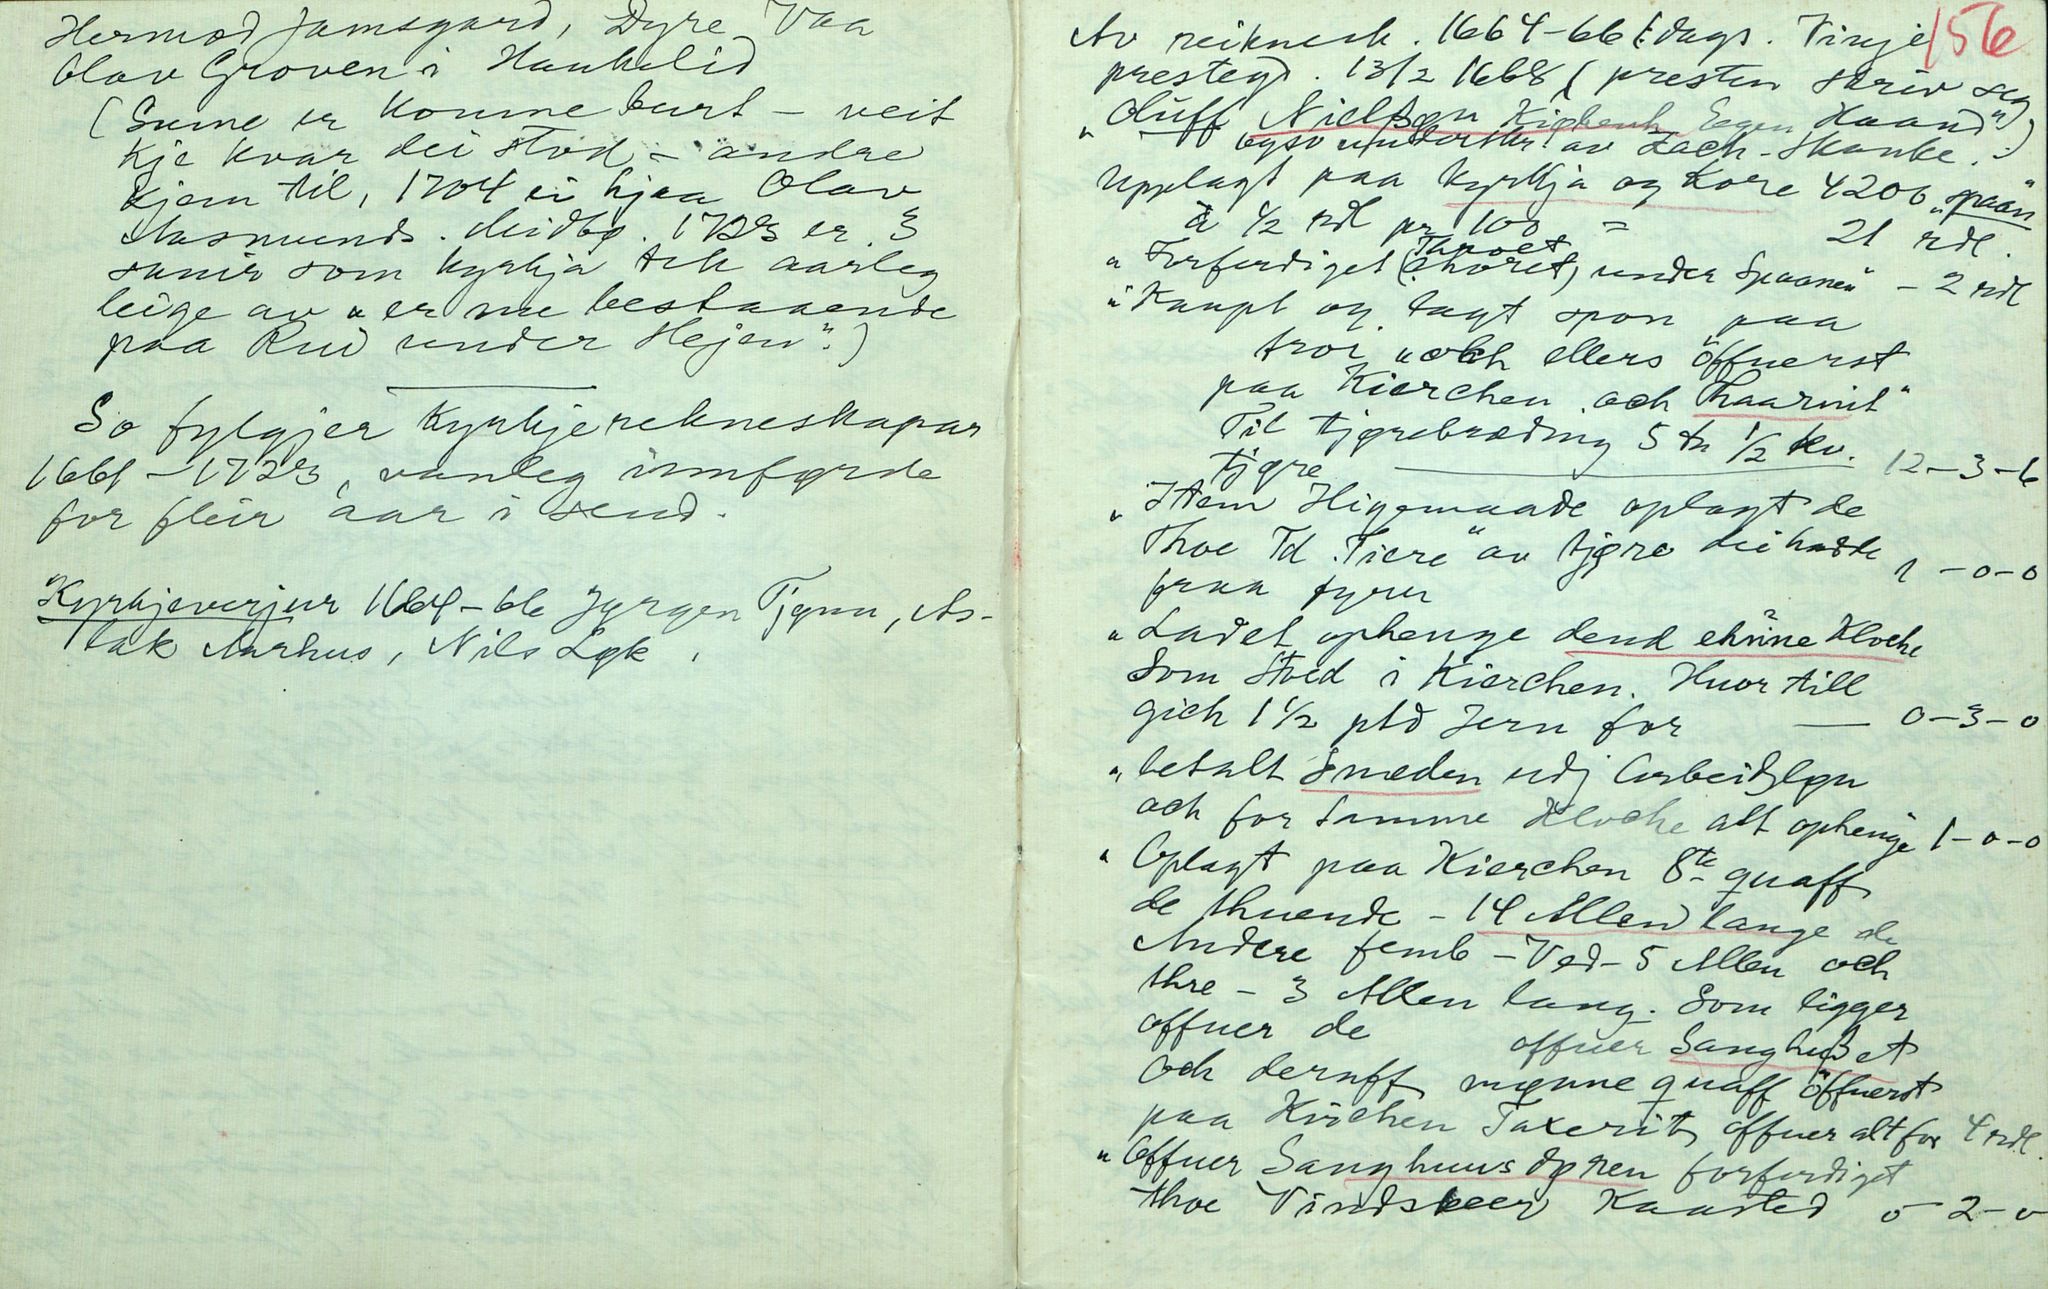 Hermod Jamsgard, Dyre Vaa
Olav Groven i Haukelid
(Sume er komne burt - veit
kje kvar dei stod - andre
kjem til, 1704 ei hjaa Olav
Aasmunds. Midbø. 1723 er 3
som kyrkja fek aarleg
leige av "er nu bestaaende
paa Rui under Hejen".)
So fylgjer kyrkjerekneskapar
1661-1723, vanleg innførde
for fleir aar i send.
"Kyrkjeverjur 1664-66 Jørgen Tjønn, As-
lak Aarhus, Nils Løk.
156
Av reiknesk. 1664-66 (: dags. Vinje
prestegd. 13/2 1668 ( presten skriv seg
"Oluff Nielssøn Egen Haand")
ogso underskr. av Zach. Skanke.:)
Upplagt paa kyrkja og kore 4200 "spaan"
à 1/2 rdl pr 100 = 21 rdl.
" Forferdiget (Throet), under Spaanen" - 2 rdl
" Kaupt og lagt spon paa
tvoi "och ellers öffuerst
paa Kierchen och Thaarnit"
Til tjørebræding 5 tn 1/2 kv.
tjøre 12-3-6
" Item Ligemaade oplagt de
Thoe Td. Tiere" av tjøre dei hadde
fraa fyrr 1-0-0
" Ladet ophenge dend Kloche
Som Stoed i Kierchen. Huor till
gich 1 1/2 pld Jern for 0-3-0
" betalt Smeden udj Arbeidsløn
och for Samme Kloche alt ophenge 1-0-0
" Oplagt paa Kierchen 8te quaff
de thuende - 14 Allen lange de
Andere femb - Ved - 5 Allen och
thre - 3 Allen lang. Som ligger
offuer de offuer Sanghuset
och deruff mønne quaff öffuerst
paa Kirchen Taxerit, offuer alt for 4 rdl.
" Offuer Sanghuus døren forferdiget
thoe Vindskeer Kaasted 0-2-0